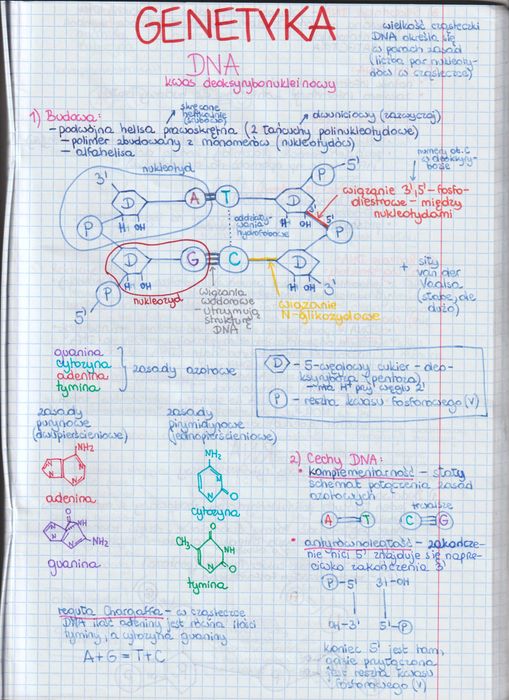 GENETYKA
wielkość cząsteczki
DNA określa się
w parach zasad
(liczba par nukleoty-
dów w cząsteczce)
DNA
kwas deoksyrybonukleinowy
skręcone
helikalnie
(śrubowo)
1) Budowa:
dwuniciowy (zazwyczaj)
- podwójna helisa prawoskrętna (2 łańcuchy polinukleotydowe)
- polimer zbudowany z monomerów (nukleotydów)
- alfahelisa
numery at. C
w deoksyry-
bozie
nukleotyd
3'
5'
P
D
A
T
D
H OH
H OH
5'
3'
wiązanie 3',5'-fosfo-
diestrowe - między
nukleotydami
oddziały-
wania
hydrofobowe
P
P
D
G
C
D
H OH
H OH
3'
P
5'
nukleozyd
wiązania
wodorowe
- utrzymują
strukturę
DNA
wiązanie
N-glikozydowe
+ siły
van der
Vaalsa
(słabe, ale
dużo)
guanina
cytozyna
adenina
tymina
zasady azotowe
D - 5-węglowy cukier - deo-
ksyryboza (pentoza)
- ma H przy węglu 2'
P - reszta kwasu fosforowego (V)
zasady
purynowe
(dwupierścieniowe)
zasady
pirymidynowe
(jednopierścieniowe)
NH₂
N
N
N
N
adenina
NH₂
N
N
O
cytozyna
O
NH
N
NH₂
guanina
O
CH₃
NH
N
O
tymina
2) Cechy DNA:
• komplementarność - stały
schemat połączenia zasad
azotowych
trwalsze
A = T C ≡ G
• antyrównoległość - zakończe-
nie nici 5' znajduje się naprze-
ciwko zakończenia 3'
P-5' 3'-OH
OH-3' 5'-P
koniec 5' jest tam,
gdzie przyłączona
jest reszta kwasu
fosforowego (V)
reguła Chargaffa - w cząsteczce
DNA ilość adeniny jest równa ilości
tyminy, a cytozyna guaniny
A+G = T+C